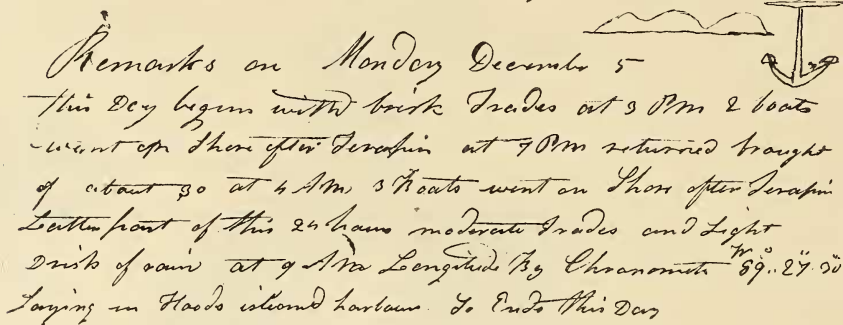 Remarks on Monday December 5
This Day begins with brisk Trades at 3 PM 2 boats
went on Shore after Terapin at 7 PM returned brought
of about 30 at 4 AM 3 Boats went on Shore after Terapin
Latter part of this 24 hours moderate Trades and Light
Drisk of rain at 9 AM Longitude By Chronometer W 89°.. 27".. 30"
Laying in Hoods island harbour So Ends this Day